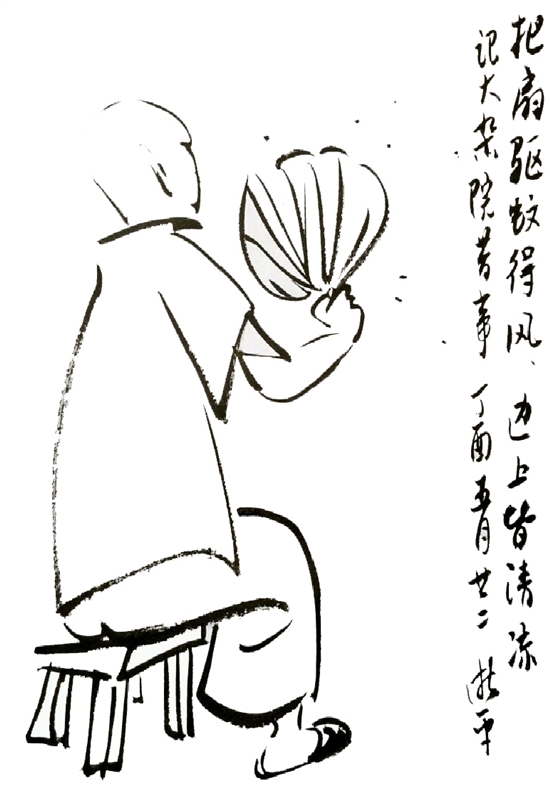 把扇驱蚊得风、边上皆清凉
记大杂院昔事 丁酉五月廿二 平